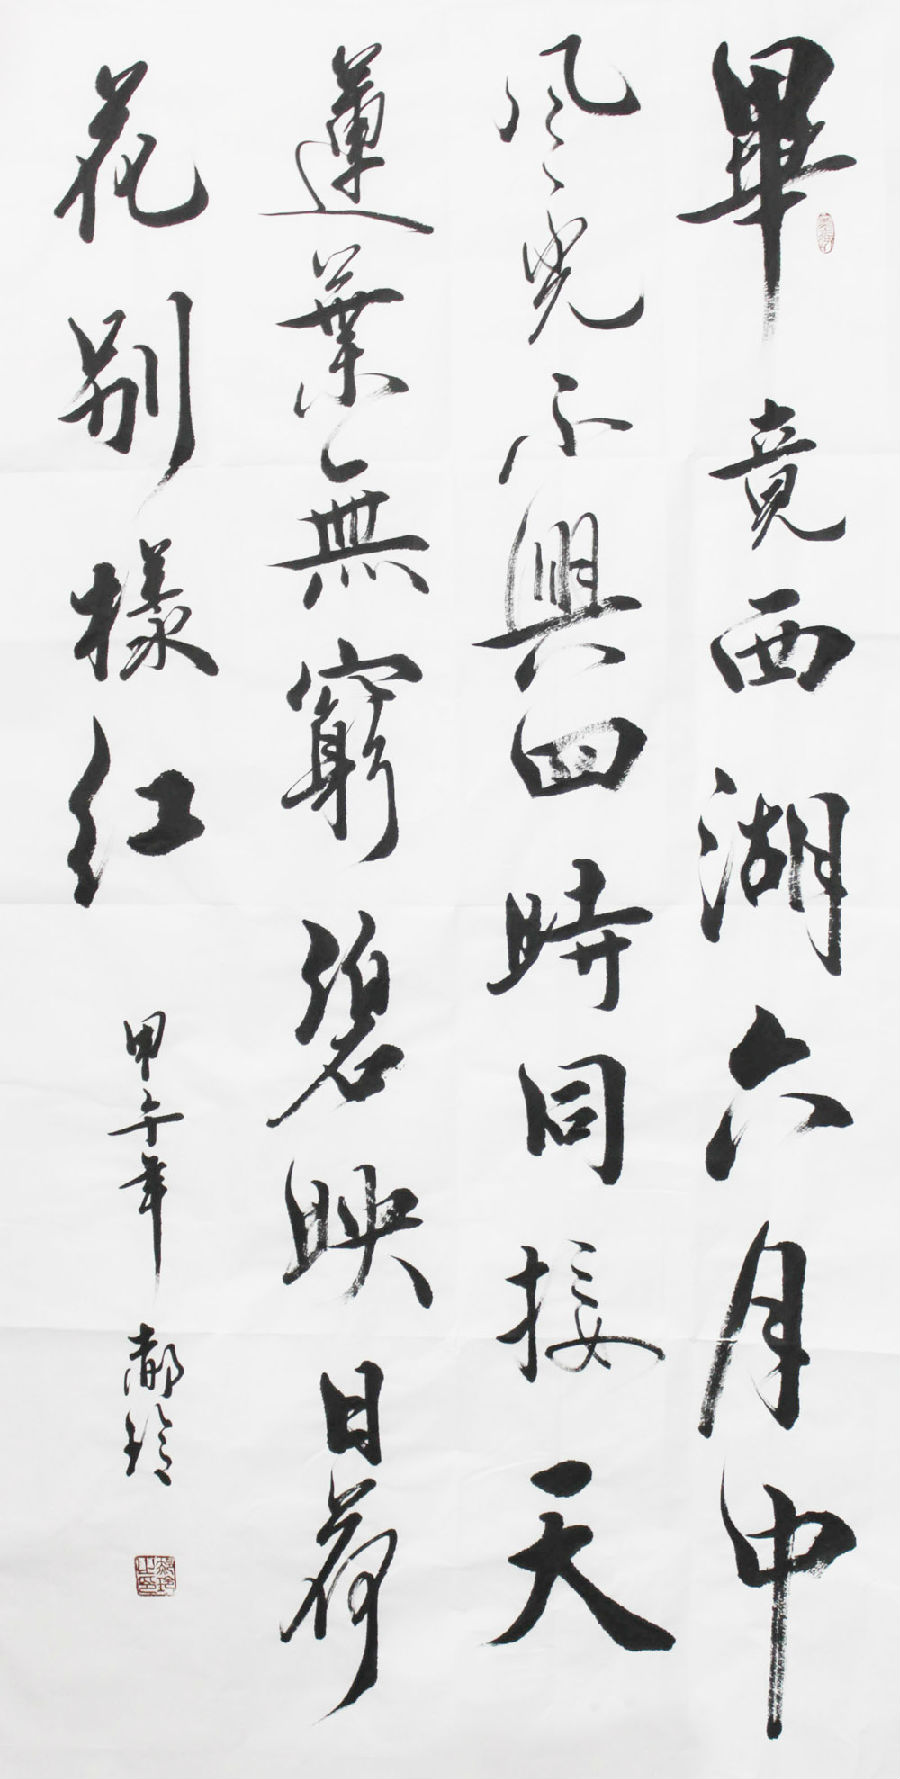 畢竟西湖六月中
風光不與四時同接天
蓮葉無窮碧映日荷
花別樣红
甲午年 郝玲